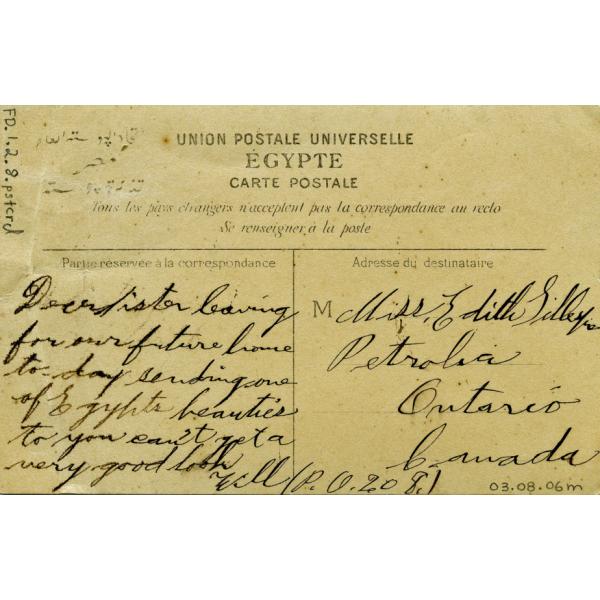 FD.1.2.8.pstcrd
UNION POSTALE UNIVERSELLE
ÉGYPTE
CARTE POSTALE
Tous les pays étrangers n'acceptent pas la correspondance au recto
Se renseigner à la poste
Partie réservée à la correspondance
Dear sister leaving
for our future home
to-day sending one
of Egypts beauties
to you can't get a
very good look
Will
Adresse du destinataire
M Miss. Edith
Petrolia
Ontario
Canada
(P.O. 208.)
03.08.06m